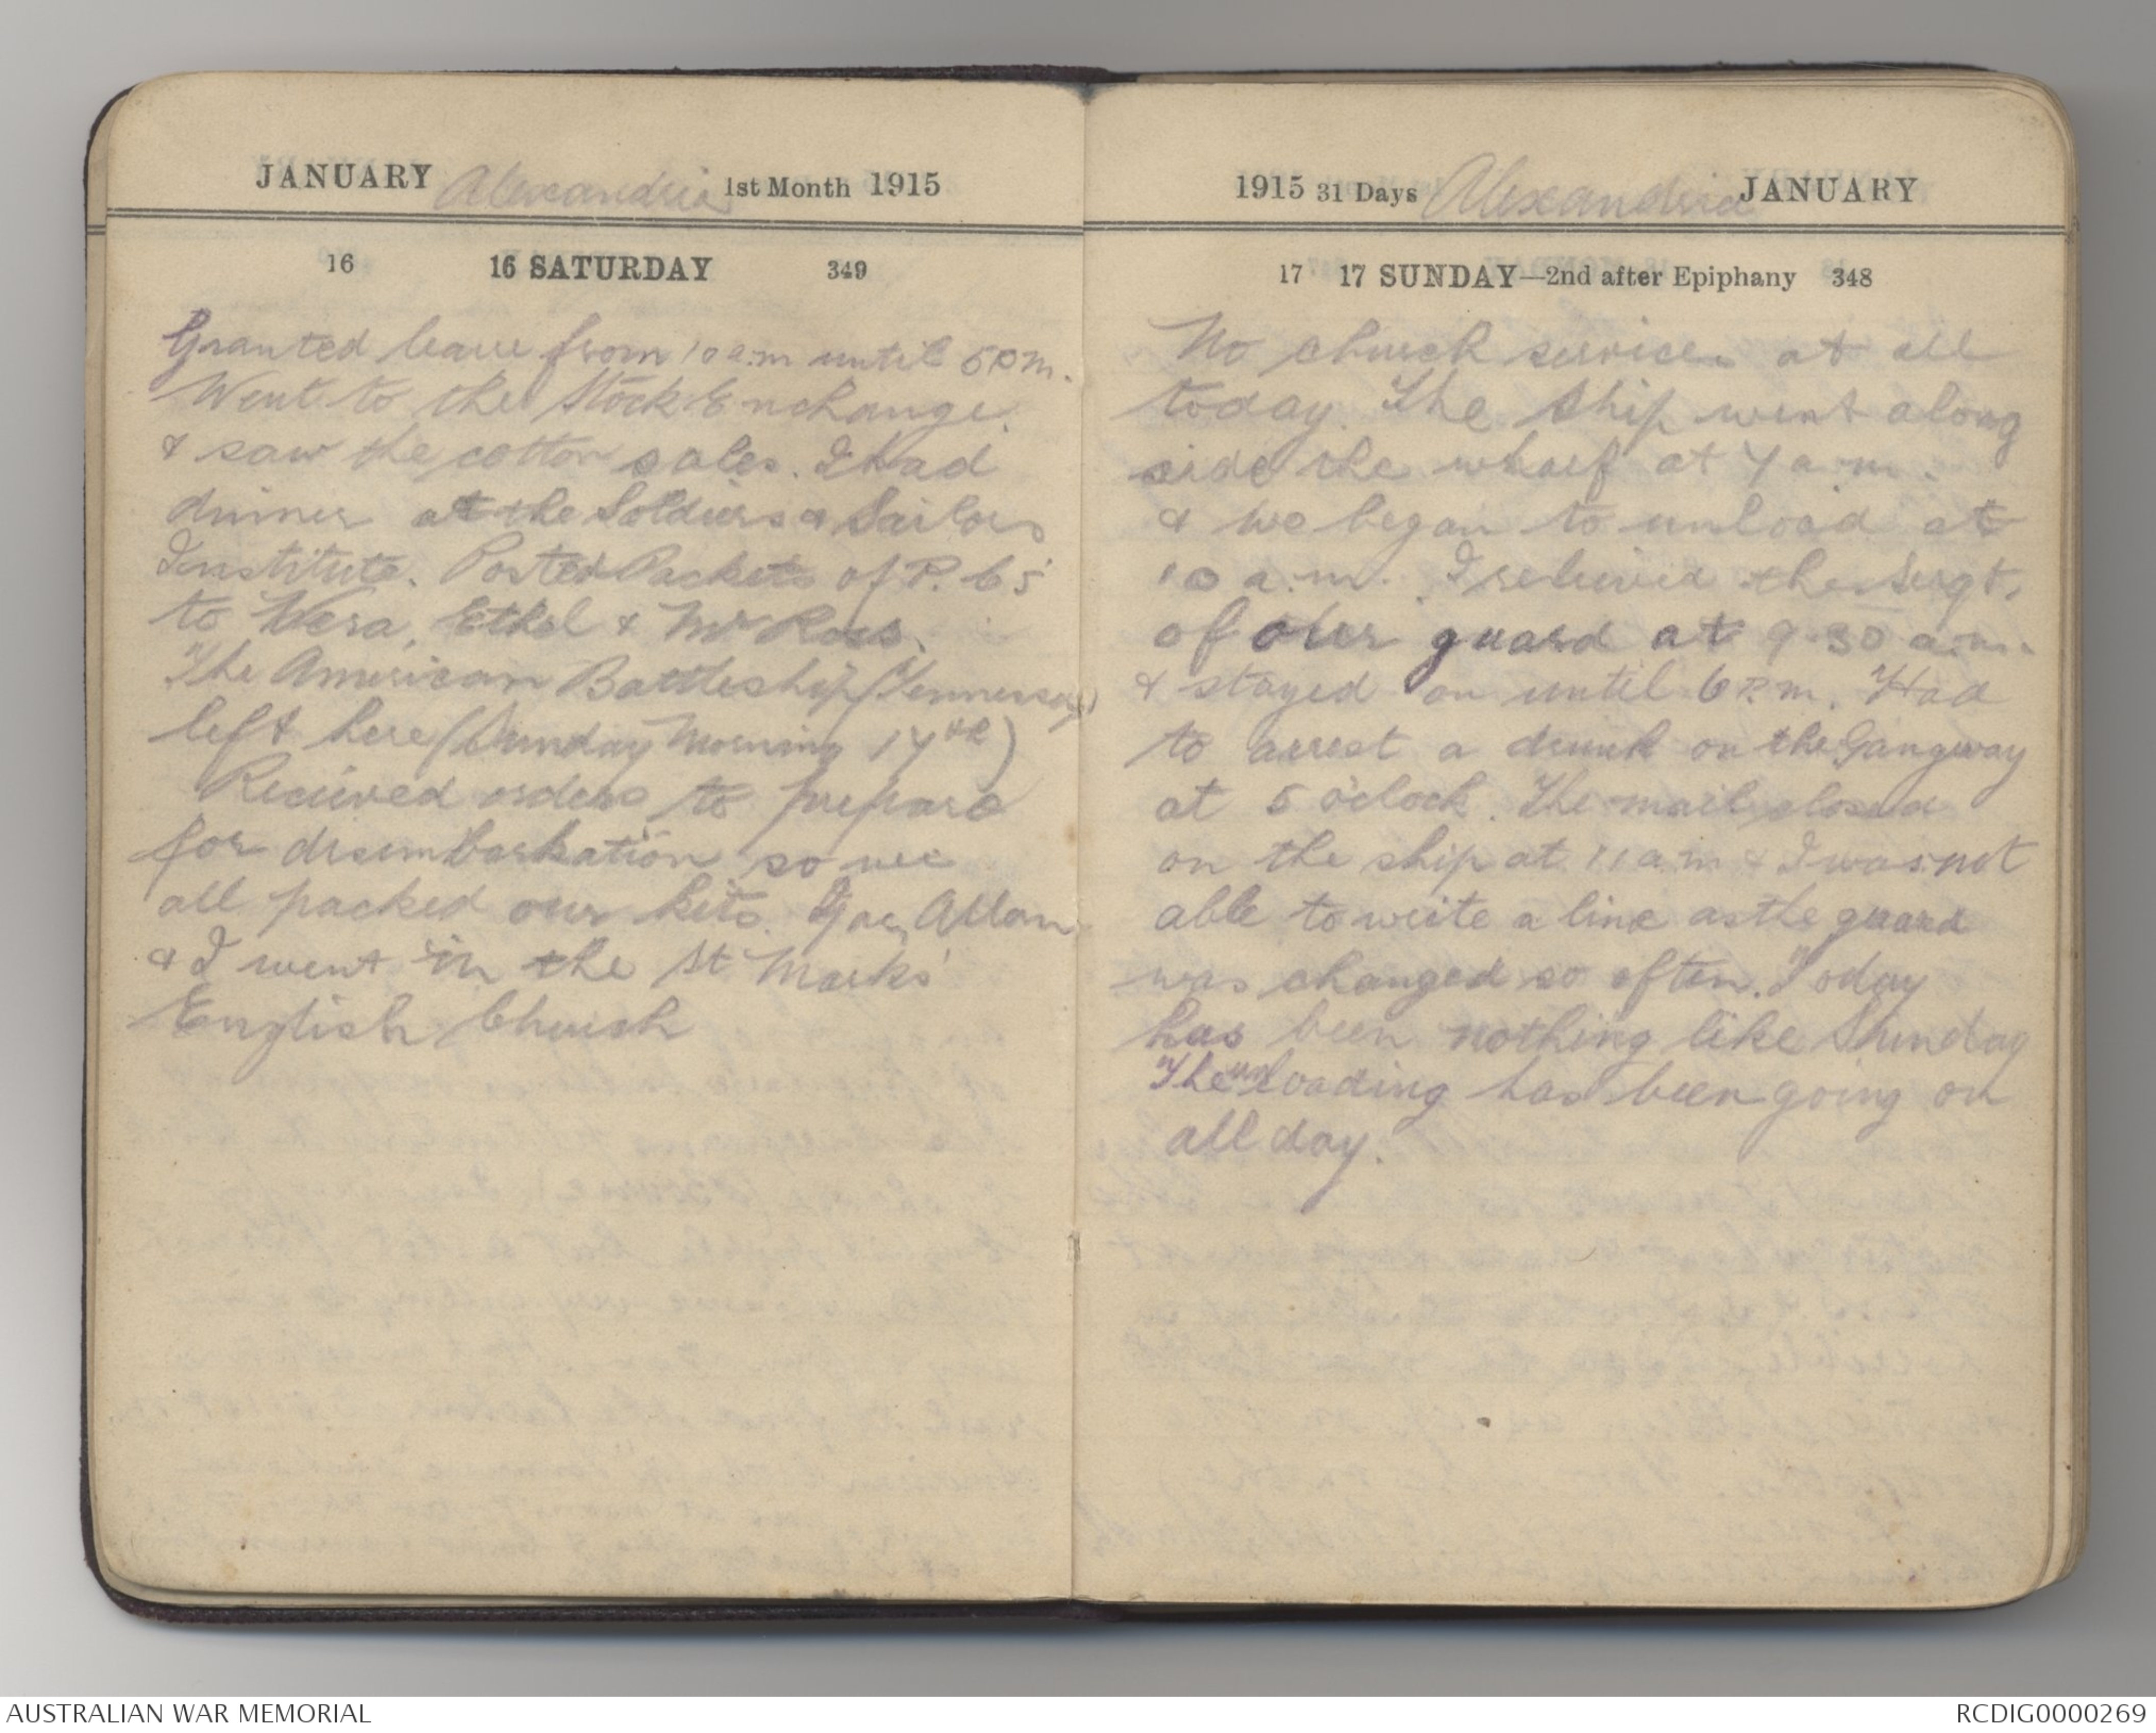 JANUARY Alexandria 1st Month 1915
16 16 SATURDAY 349
Granted leave from 10 a.m until 5 P.M.
Went to the Stock Enchange
& saw the cotton sales. I had
dinner at the Soldiers & Sailors
Institute. Posted Packets of P. Cs
to Vera, Ethel & Mr Ross.
The American Battleship (Tennessee)
left here (Sunday Morning 17th)
Recieved orders to prepare
for disembarkation so we
all packed our kits. Allan
& I went in the St Marks'
English Church
1915 31 Days Alexandria JANUARY
17 17 SUNDAY—2nd after Epiphany 348
No church services at all
today. The Ship went along
side the wharf at 7 a.m.
& we began to unload at
10 a.m. I relieved the Sergt.
of our guard at 9.30 a.m.
& stayed on until 6 P.m. Had
to arrest a drunk on the Gangway
at 5 o'clock. The mail closed
on the ship at 11 a m & I was not
able to write a line as the guard
was changed so often. Today
has been nothing like Sunday
The unloading has been going on
all day.
AUSTRALIAN WAR MEMORIAL
RCDIG0000269